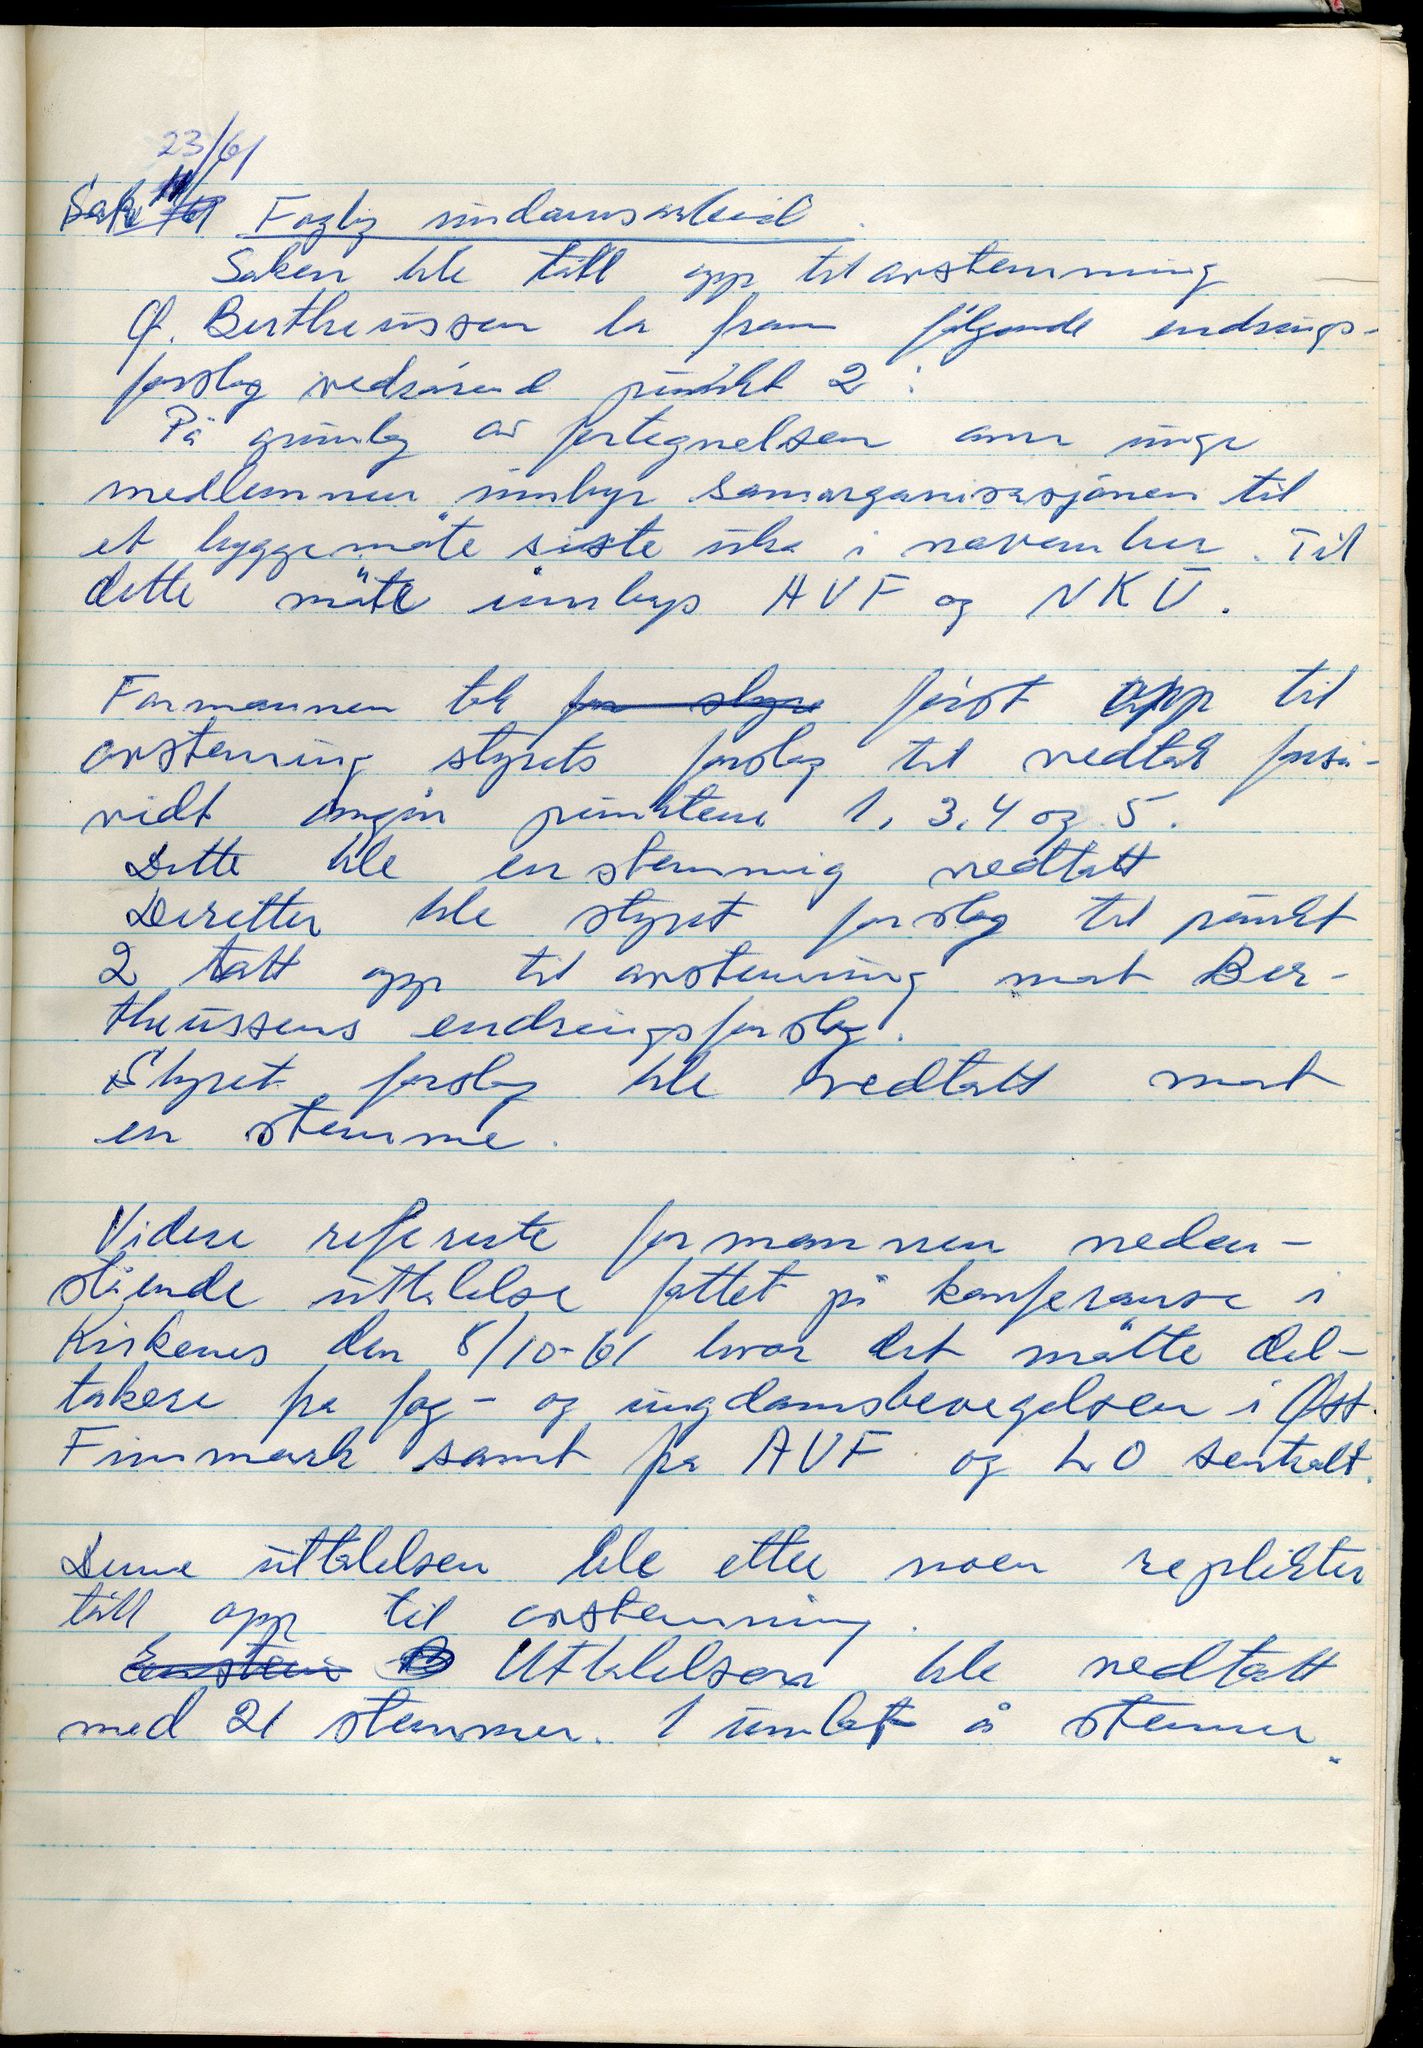 23/61
Sak Faglig undomsarbeid.
Saken ble tatt opp til avstemning
O. Bertheussen la fram følgende endrings-
forslag vedrørend punkt 2:
På grunlag av fortegnelsen over unge
medlemmer innbyr samorganisasjonen til
et hyggemøte siste uka i november. Til
dette møte innbys AUF og NKU.
Formannen tok for styre først opp til
avstemning styrets forslag til vedtak forså-
vidt angår punktene 1, 3, 4 og 5.
Dette ble enstemmig vedtatt
Deretter ble styret forslag til punkt
2 tatt opp til avstemning mot Ber-
theussens endringsforslag.
Styret forslag ble vedtatt mot
en stemme.
Videre refererte formannen neden-
stående uttalelse fattet på konferanse i
Kirkenes den 8/10-61 hvor det møtte del-
takere fra fag- og ungdomsbevegelsen i Øst-
Finnmark samt fra AUF og LO sentralt.
Denne uttalelsen ble etter noen replikker
tatt opp til avstemning.
Enstem Uttalelsen ble vedtatt
med 21 stemmer. 1 unnlot å stemme.